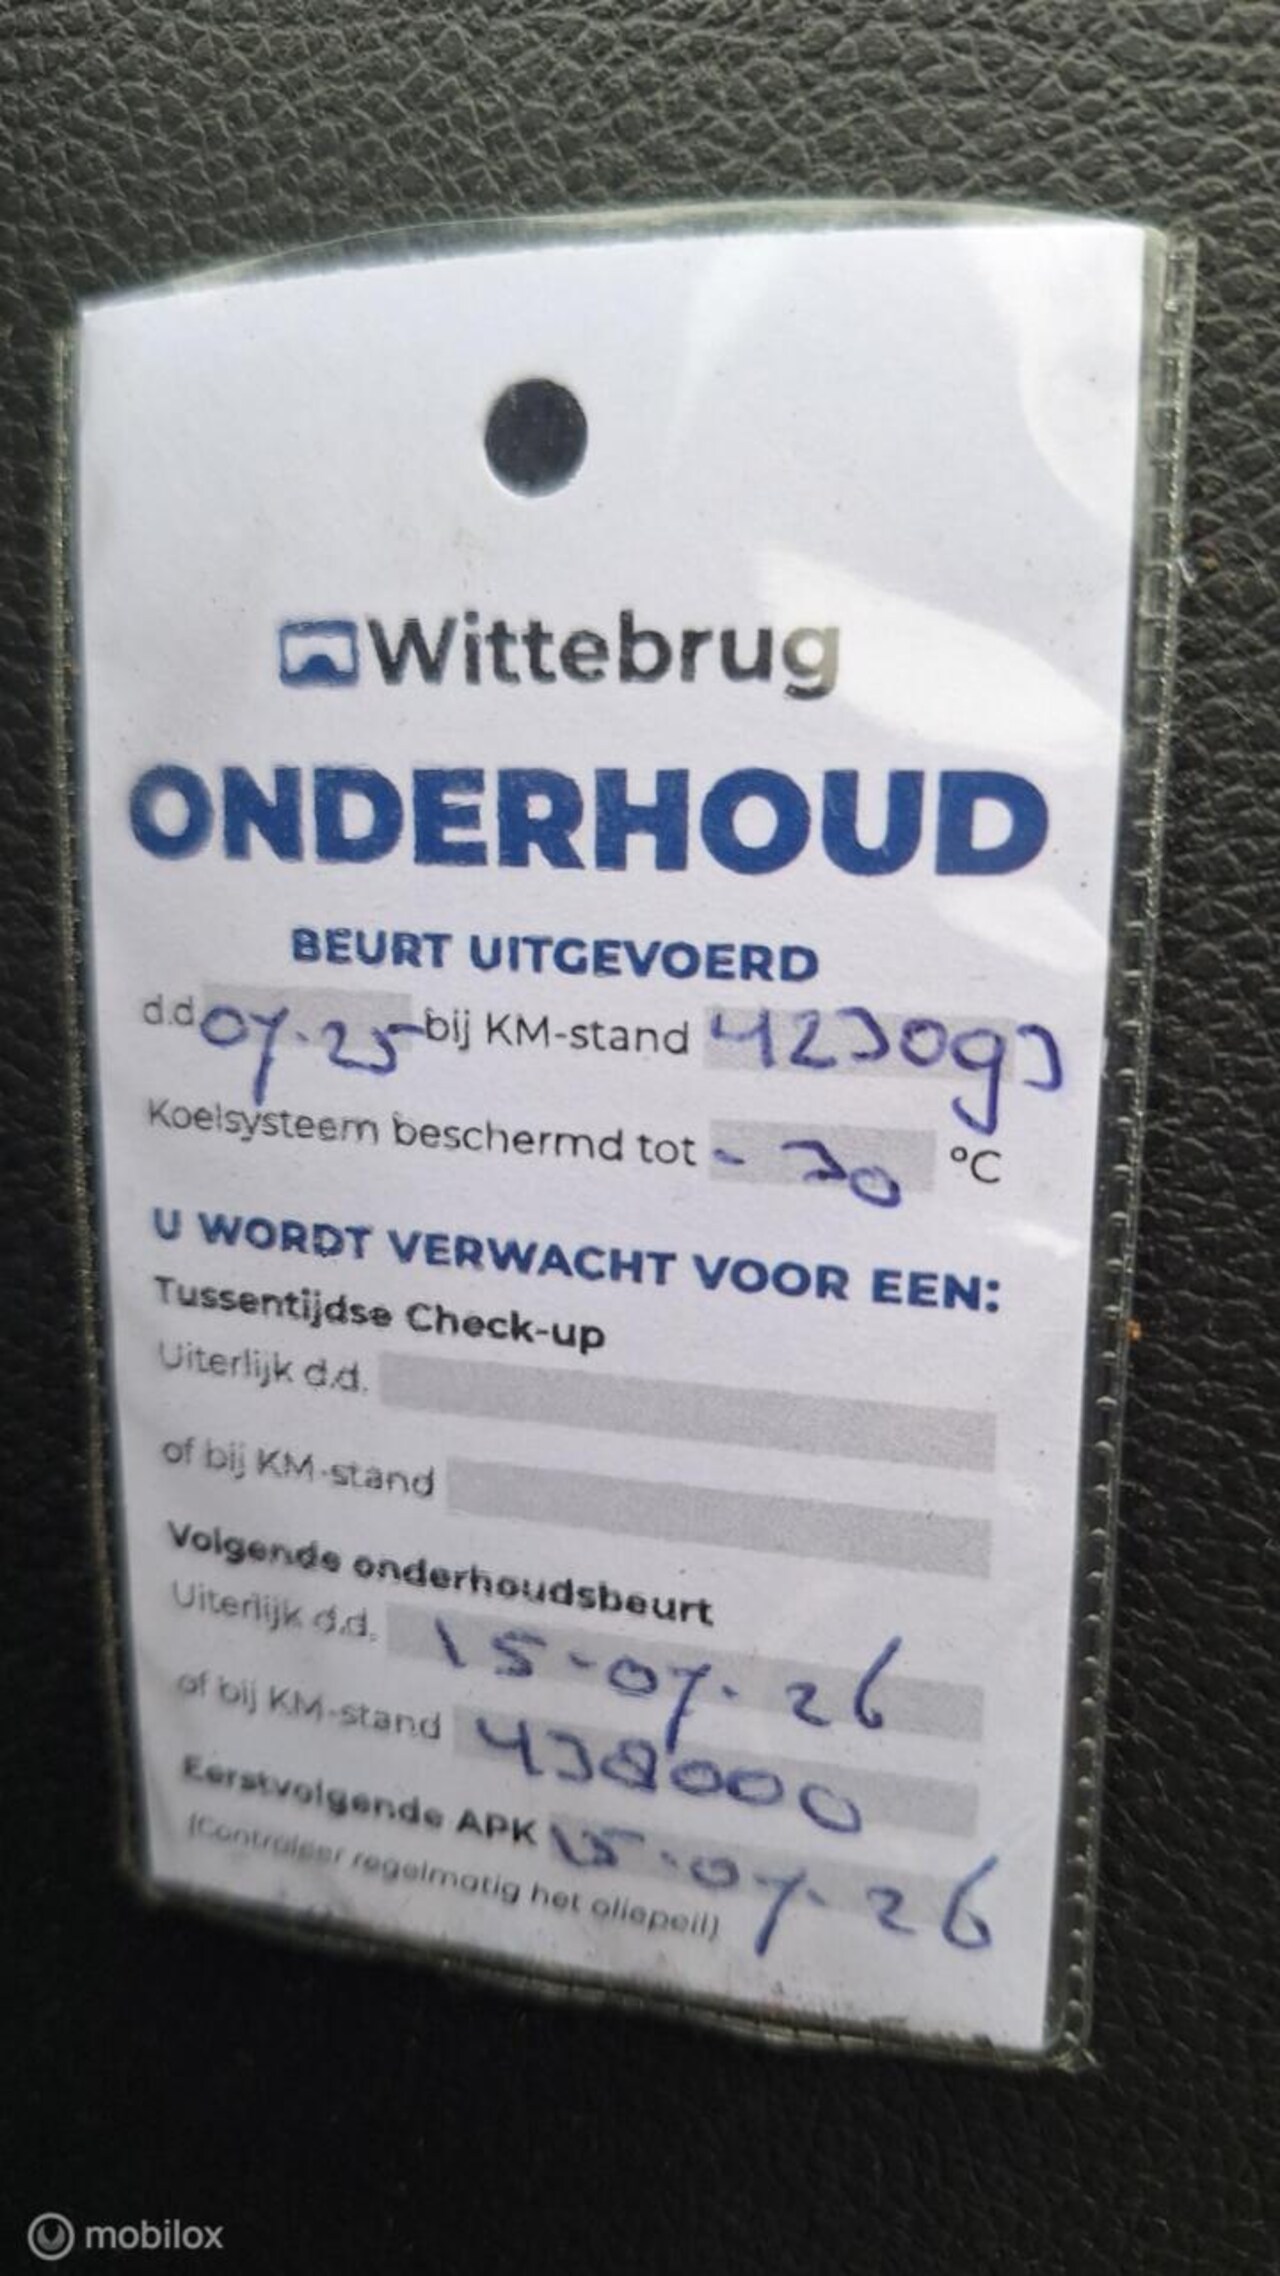 Wittebrug
ONDERHOUD
BEURT UITGEVOERD
d.d. 07.25 bij KM-stand 423093
Koelsysteem beschermd tot - 30 °C
U WORDT VERWACHT VOOR EEN:
Tussentijdse Check-up
Uiterlijk d.d.
of bij KM-stand
Volgende onderhoudsbeurt
Uiterlijk d.d. 15-07-26
of bij KM-stand 438000
Eerstvolgende APK 15-07-26
(Controleer regelmatig het oliepeil)
mobilox